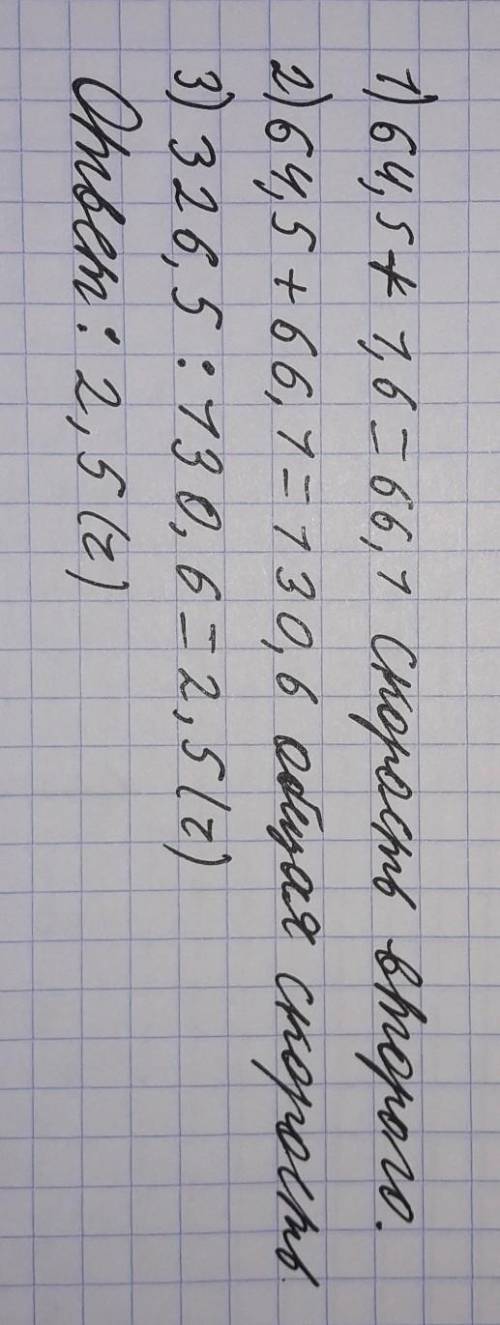 1) 64,5 + 1,6 = 66,1 скорость второго.
2) 64,5 + 66,1 = 130,6 общая скорость.
3) 326,5 : 130,6 = 2,5 (ч)
Ответ: 2,5 (ч)